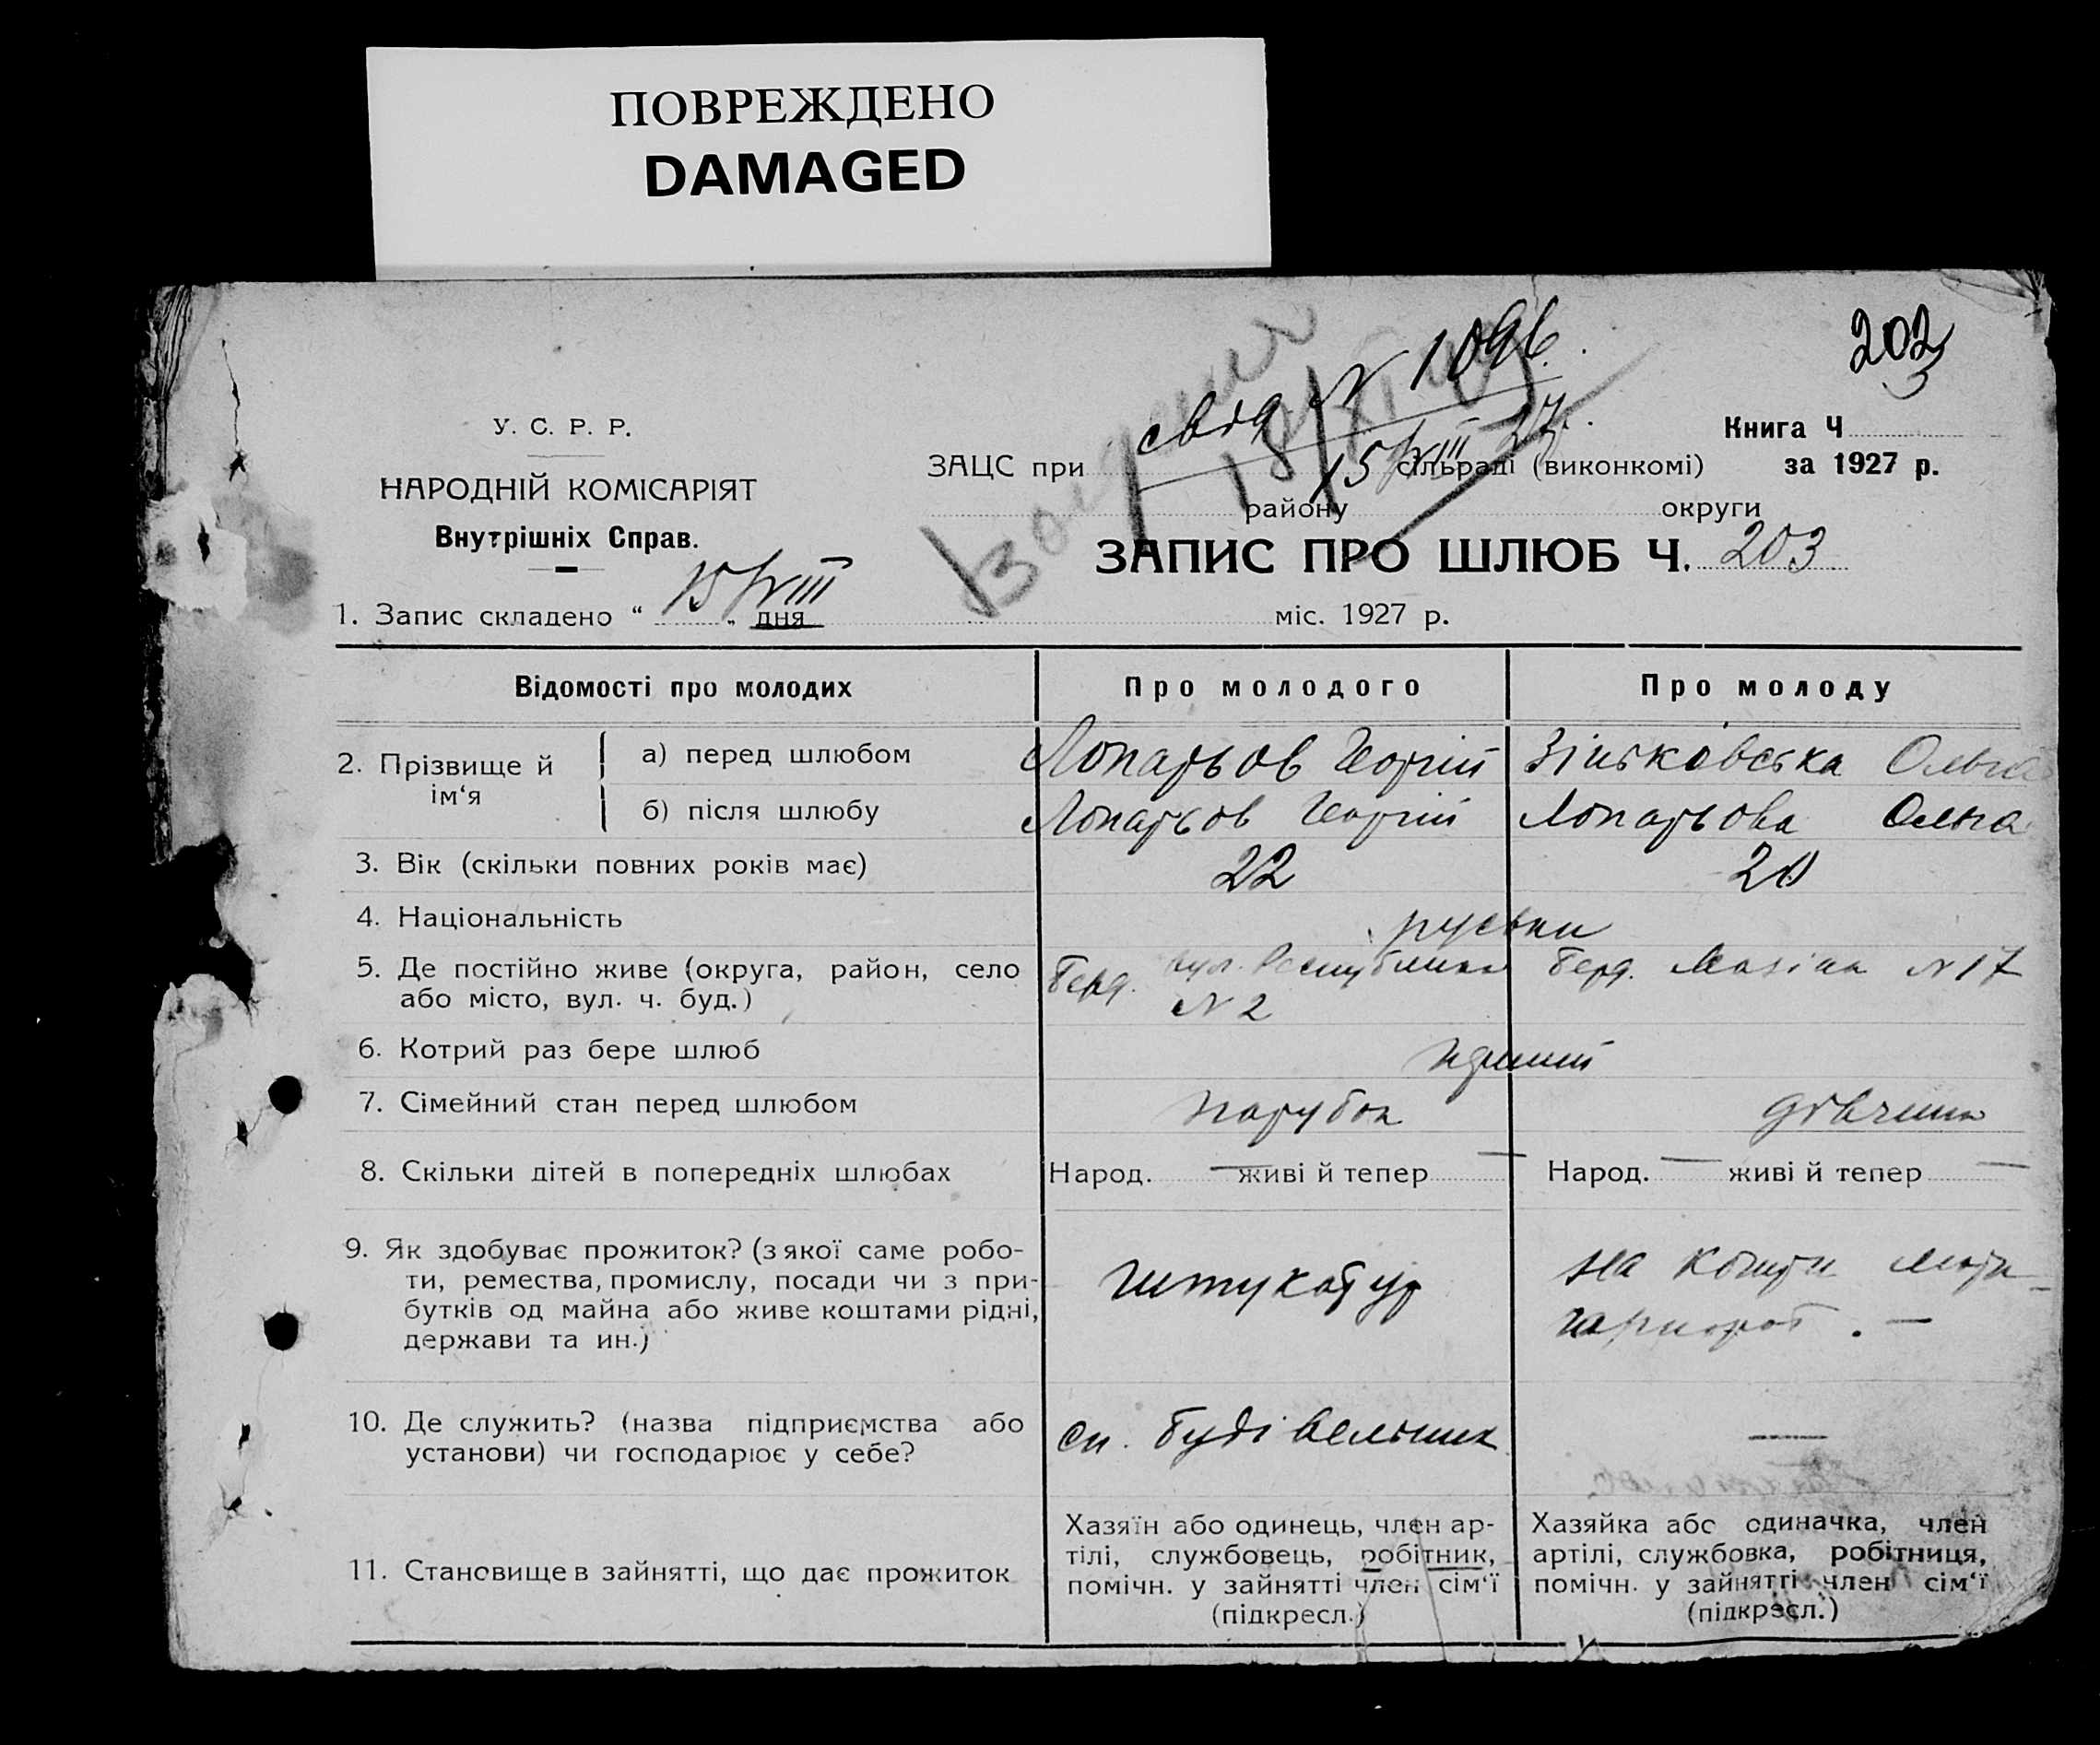 ПОВРЕЖДЕНО
DAMAGED
203
свід № 1096
15/VIII 27.
У. С. Р. Р.
НАРОДНІЙ КОМІСАРІЯТ
Внутрішніх Справ.
Книга Ч
за 1927 р.
ЗАЦС при сільраді (виконкомі)
району округи
ЗАПИС ПРО ШЛЮБ Ч. 203
1. Запис складено “ 15/VIII „ дня міс. 1927 р.
Відомості про молодих Про молодого Про молоду
2. Прізвище й ім‘я а) перед шлюбом Лопатьов Георгій Зіньковська Ольга
б) після шлюбу Лопатьов Георгій Лопатьова Ольга
3. Вік (скільки повних років має) 22 20
4. Національність руськи
5. Де постійно живе (округа, район, село Берд. вул. Республики Берд. № 17
або місто, вул. ч. буд.) № 2
6. Котрий раз бере шлюб
7. Сімейний стан перед шлюбом парубок дівчина
8. Скільки дітей в попередніх шлюбах Народ. — живі й тепер — Народ. — живі й тепер —
9. Як здобуває прожиток? (з якої саме робо-
ти, ремества, промислу, посади чи з при- штукатур на кошти
бутків од майна або живе коштами рідні,
держави та ин.)
10. Де служить? (назва підприємства або сп. будівельник —
установи) чи господарює у себе?
Хазяїн або одинець, член ар-
тілі, службовець, робітник,
помічн. у зайнятті член сім‘ї
(підкресл.)
Хазяйка або одиначка, член
артілі, службовка, робітниця,
помічн. у зайнятті член сім‘ї
(підкресл.)
11. Становище в зайнятті, що дає прожиток